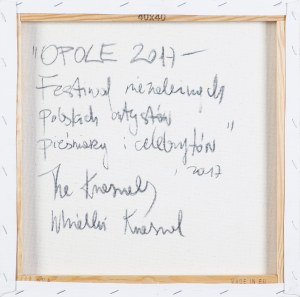 40x40
"OPOLE 2017 –
Festiwal niezależnych
polskich artystów
pieśniarzy i celebrytów"
2017
The Krasnals
Whielki Krasnal